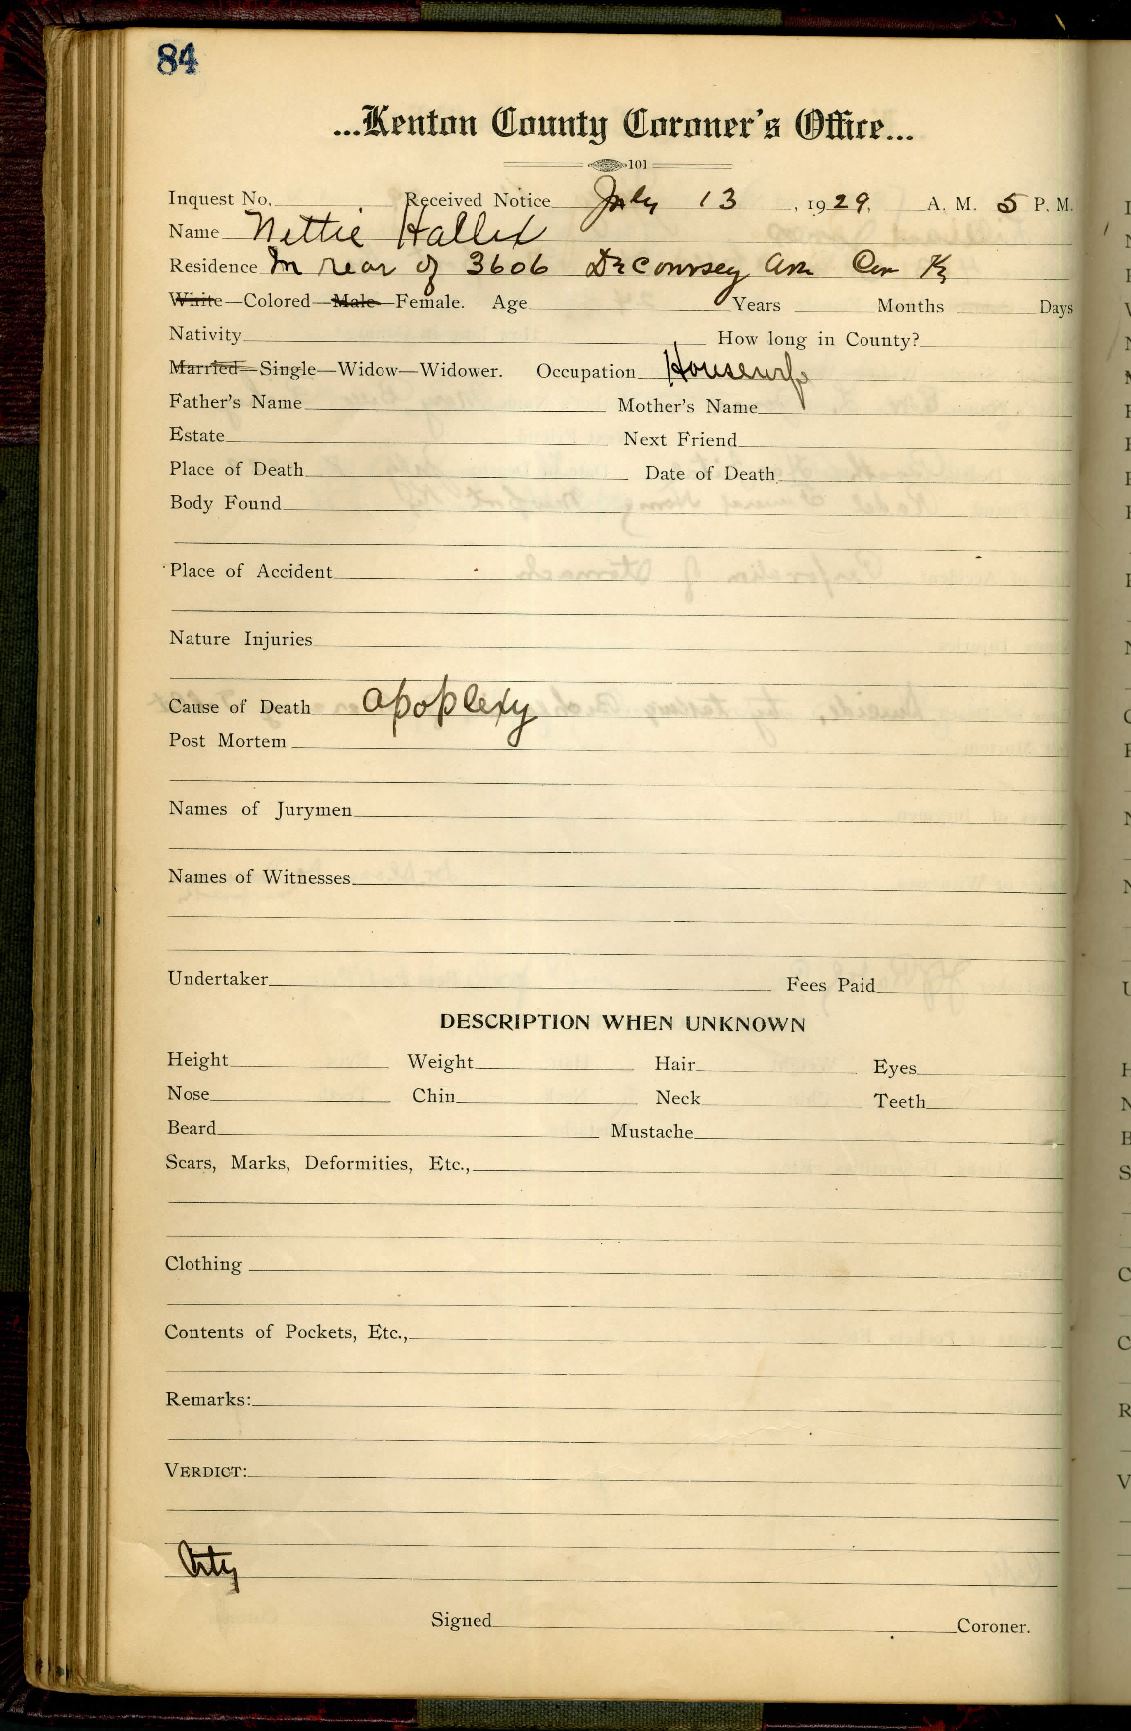 84
...Kenton County Coroner's Office...
101
Inquest No. Received Notice July 13, 1929, A. M. 5 P. M.
Name Nettie
Residence In rear of 3606 DeCoursey Ave Cov Ky
White—Colored—Male—Female. Age Years Months Days
Nativity How long in County?
Married—Single—Widow—Widower. Occupation Housewife
Father's Name Mother's Name
Estate Next Friend
Place of Death Date of Death
Body Found
Place of Accident
Nature Injuries
Cause of Death apoplexy
Post Mortem
Names of Jurymen
Names of Witnesses
Undertaker Fees Paid
DESCRIPTION WHEN UNKNOWN
Height Weight Hair Eyes
Nose Chin Neck Teeth
Beard Mustache
Scars, Marks, Deformities, Etc.,
Clothing
Contents of Pockets, Etc.,
Remarks:
VERDICT:
City
Signed Coroner.